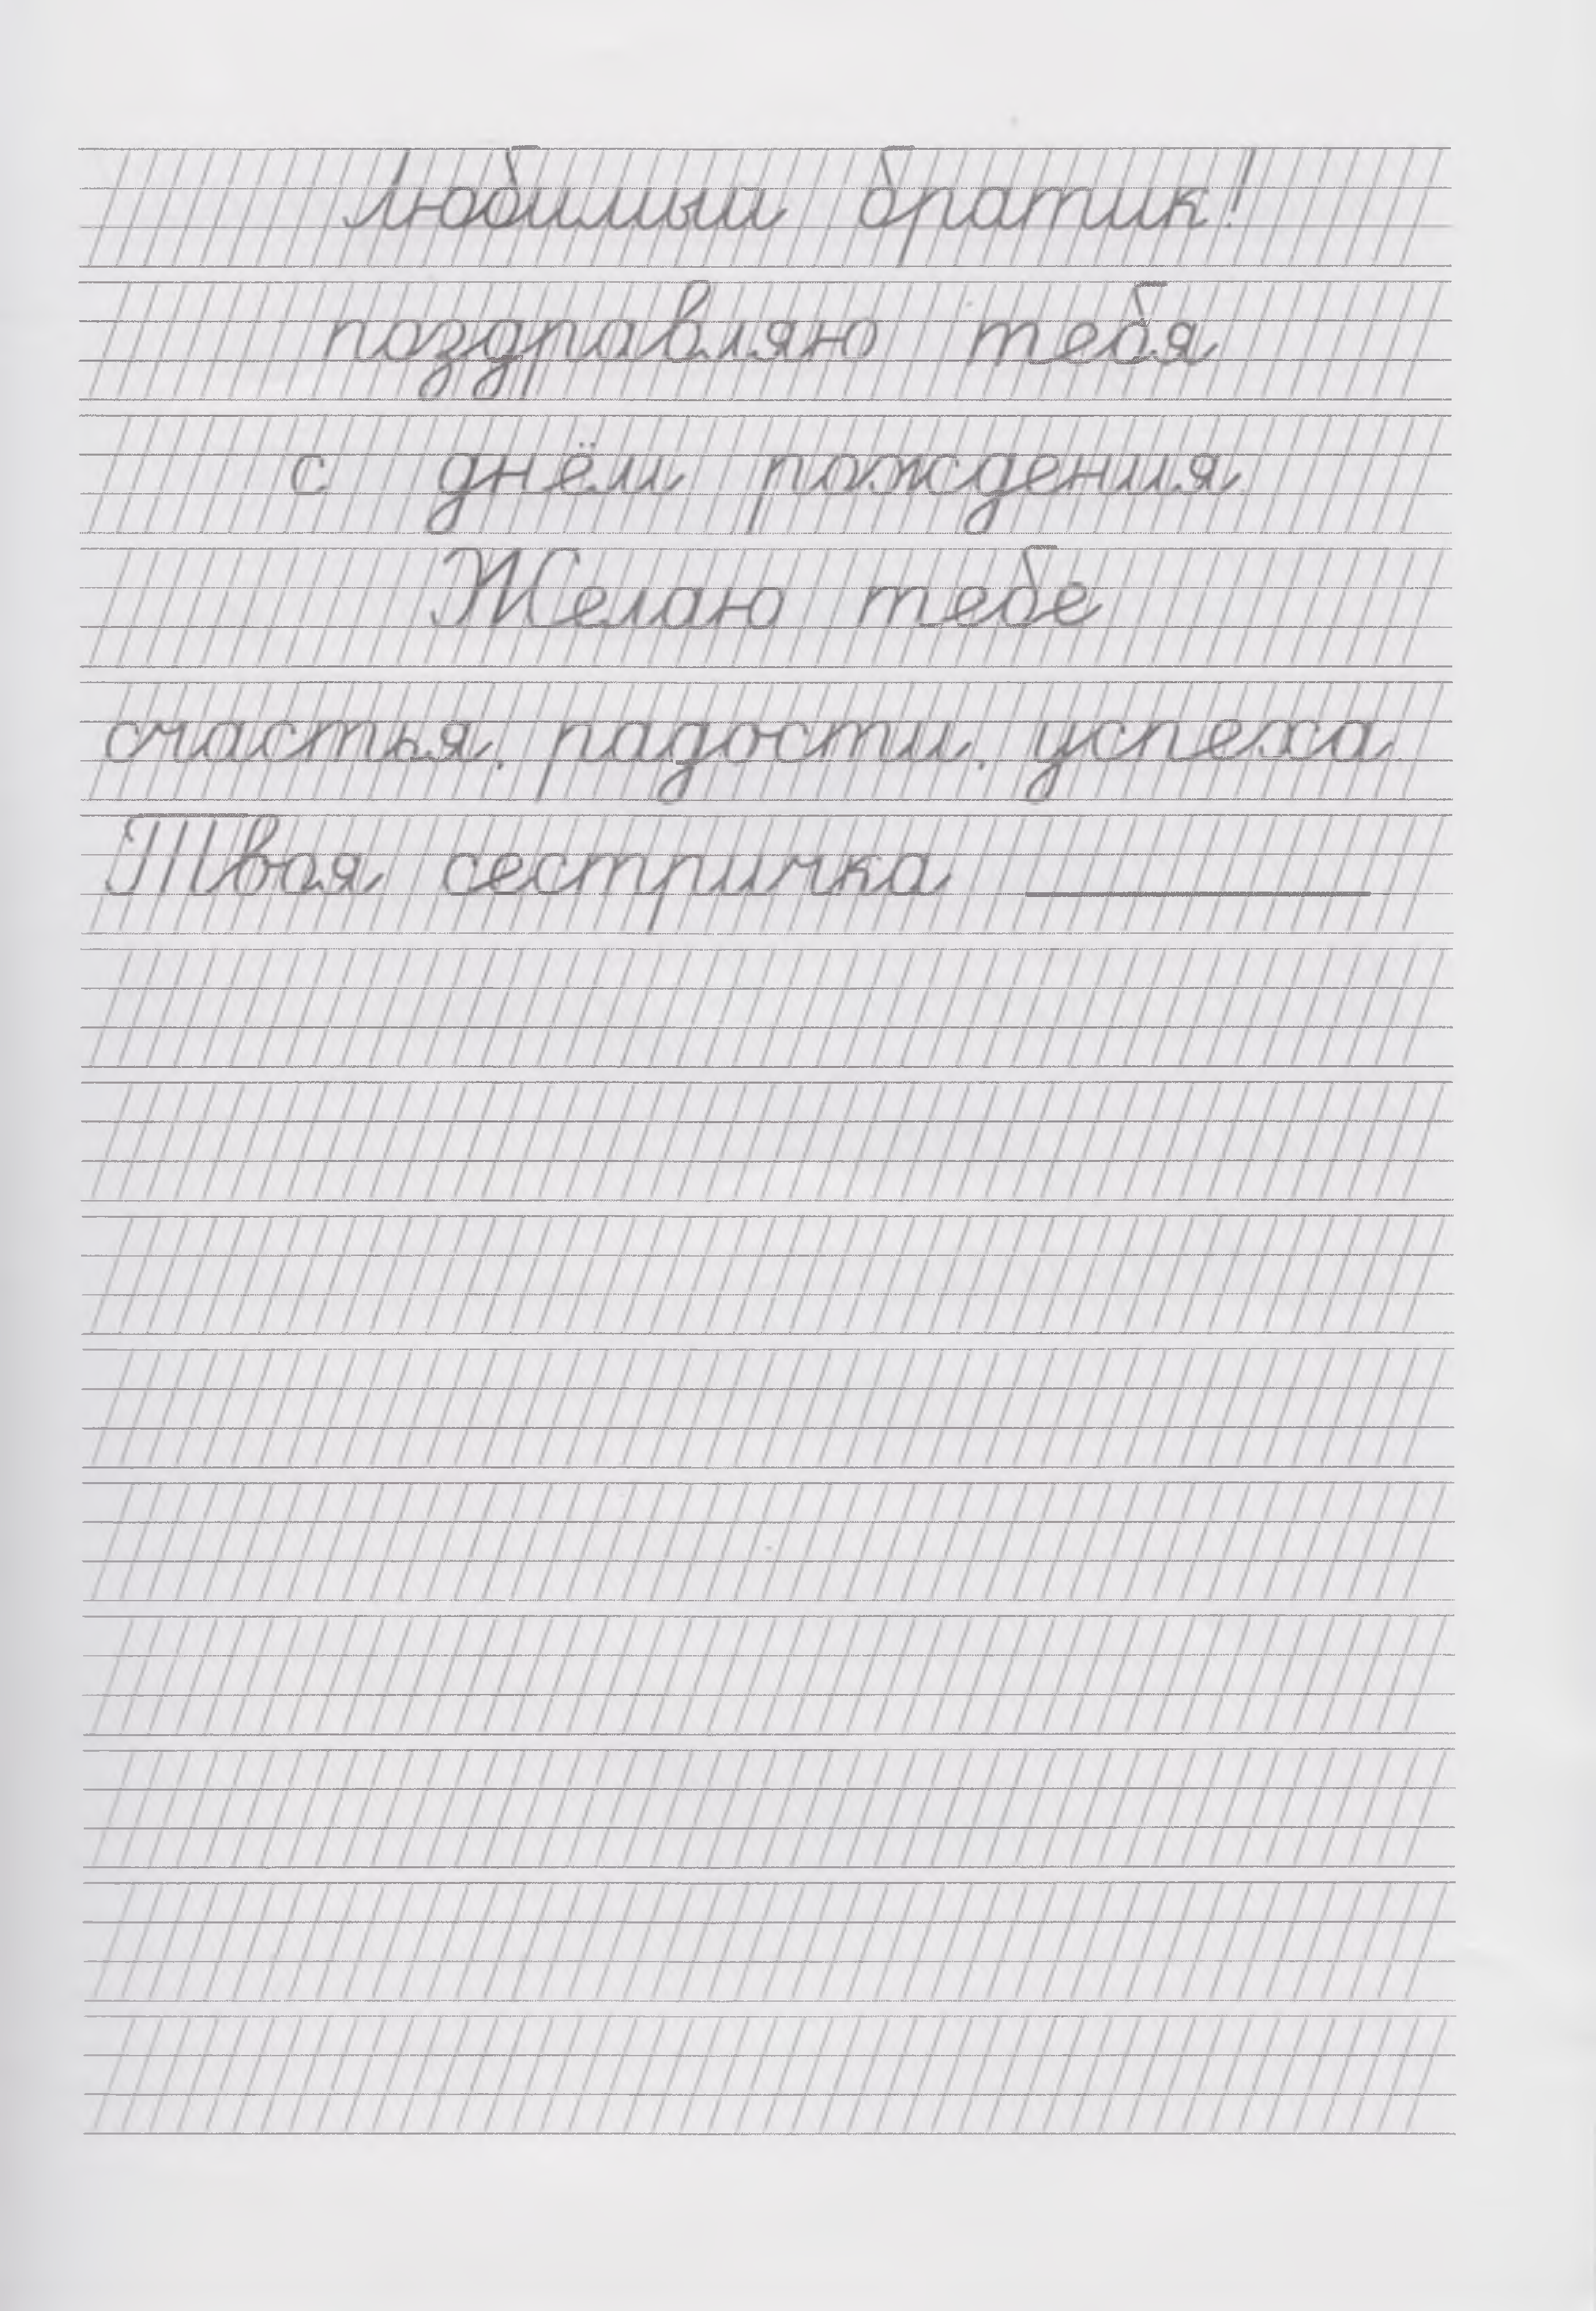 Любимый братик!
поздравляю тебя
с днём рождения
Желаю тебе
счастья, радости, успеха
Твоя сестричка ____________